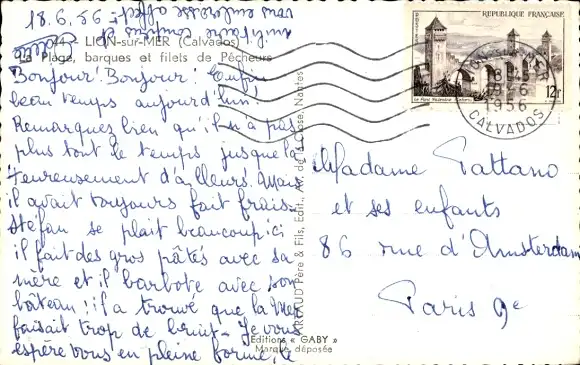 18.6.56
vous embrasse affect
44 LION-sur-MER (Calvados)
La Plage, barques et filets de Pêcheurs
Bonjour! Bonjour! Enfin
beau temps aujourd'hui!
Remarques bien qu'il n'a pas
plus tout le temps jusque là
heureusement d'ailleurs. Mais
il avait toujours fait frais.
Stefan se plait beaucoup ici
il fait des gros pâtés avec sa
mère et il barbote avec son
bâteau; il a trouvé que la mer
faisait trop de bruit. Je vous
espère tous en pleine forme,
ARTAUD Père & Fils, Edit., Av. de la Close, Nantes
Editions « GABY »
Marque déposée
POSTES
REPUBLIQUE FRANÇAISE
Le Pont Valentré Cahors
12f
1956
CALVADOS
Madame Pattano
et ses enfants
86 rue d'Amsterdam
Paris 9e